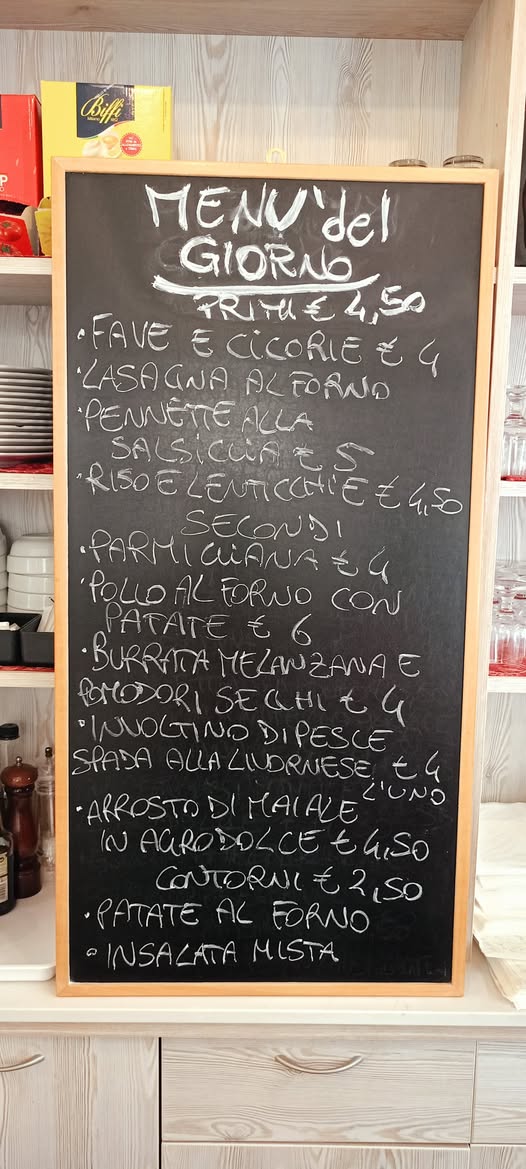 Biffi
MENU' del
GIORNO
PRIMI € 4,50
• FAVE E CICORIE € 4
• LASAGNA AL FORNO
• PENNETTE ALLA
SALSICCIA € 5
• RISO E LENTICCHIE € 4,50
SECONDI
• PARMIGIANA € 4
• POLLO AL FORNO CON
PATATE € 6
• BURRATA MELANZANA E
POMODORI SECCHI € 4
• INVOLTINO DI PESCE
SPADA ALLA LIVORNESE € 4
L'UNO
• ARROSTO DI MAIALE
IN AGRODOLCE € 4,50
CONTORNI € 2,50
• PATATE AL FORNO
• INSALATA MISTA